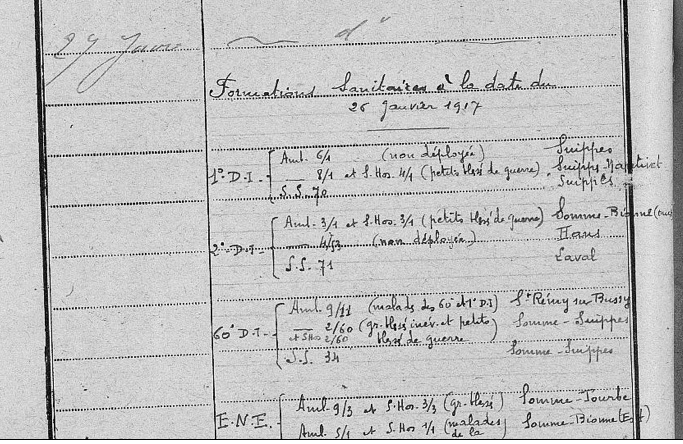 27 Janv
— d° —
Formations Sanitaires à la date du
26 Janvier 1917
1° D.I. - Amb. 6/1 (non déployée) Suippes
— 8/1 et S.Hos. 4/1 (petits blessés de guerre). Suippes-
S.S. 70 Suippes
2° D.I. - Amb. 3/1 et S.Hos. 3/1 (petits blessés de guerre) Somme-Bionne
— 4/53 (non déployée) Hans
S.S. 71 Laval
60° D.I. - Amb. 9/11 (malades des 60° et 1° D.I) St Rémy sur Bussy
— 2/60 (gr. blessés inev. et petits Somme-Suippes
et S.Hos 2/60 blessés de guerre
S.S. 34 Somme-Suippes
E.N.E. - Amb. 9/3 et S.Hos. 3/3 (gr. blessés) Somme-Tourbe
Amb. 5/1 et S.Hos 1/1 (malades Somme-Bionne (Est)
de la